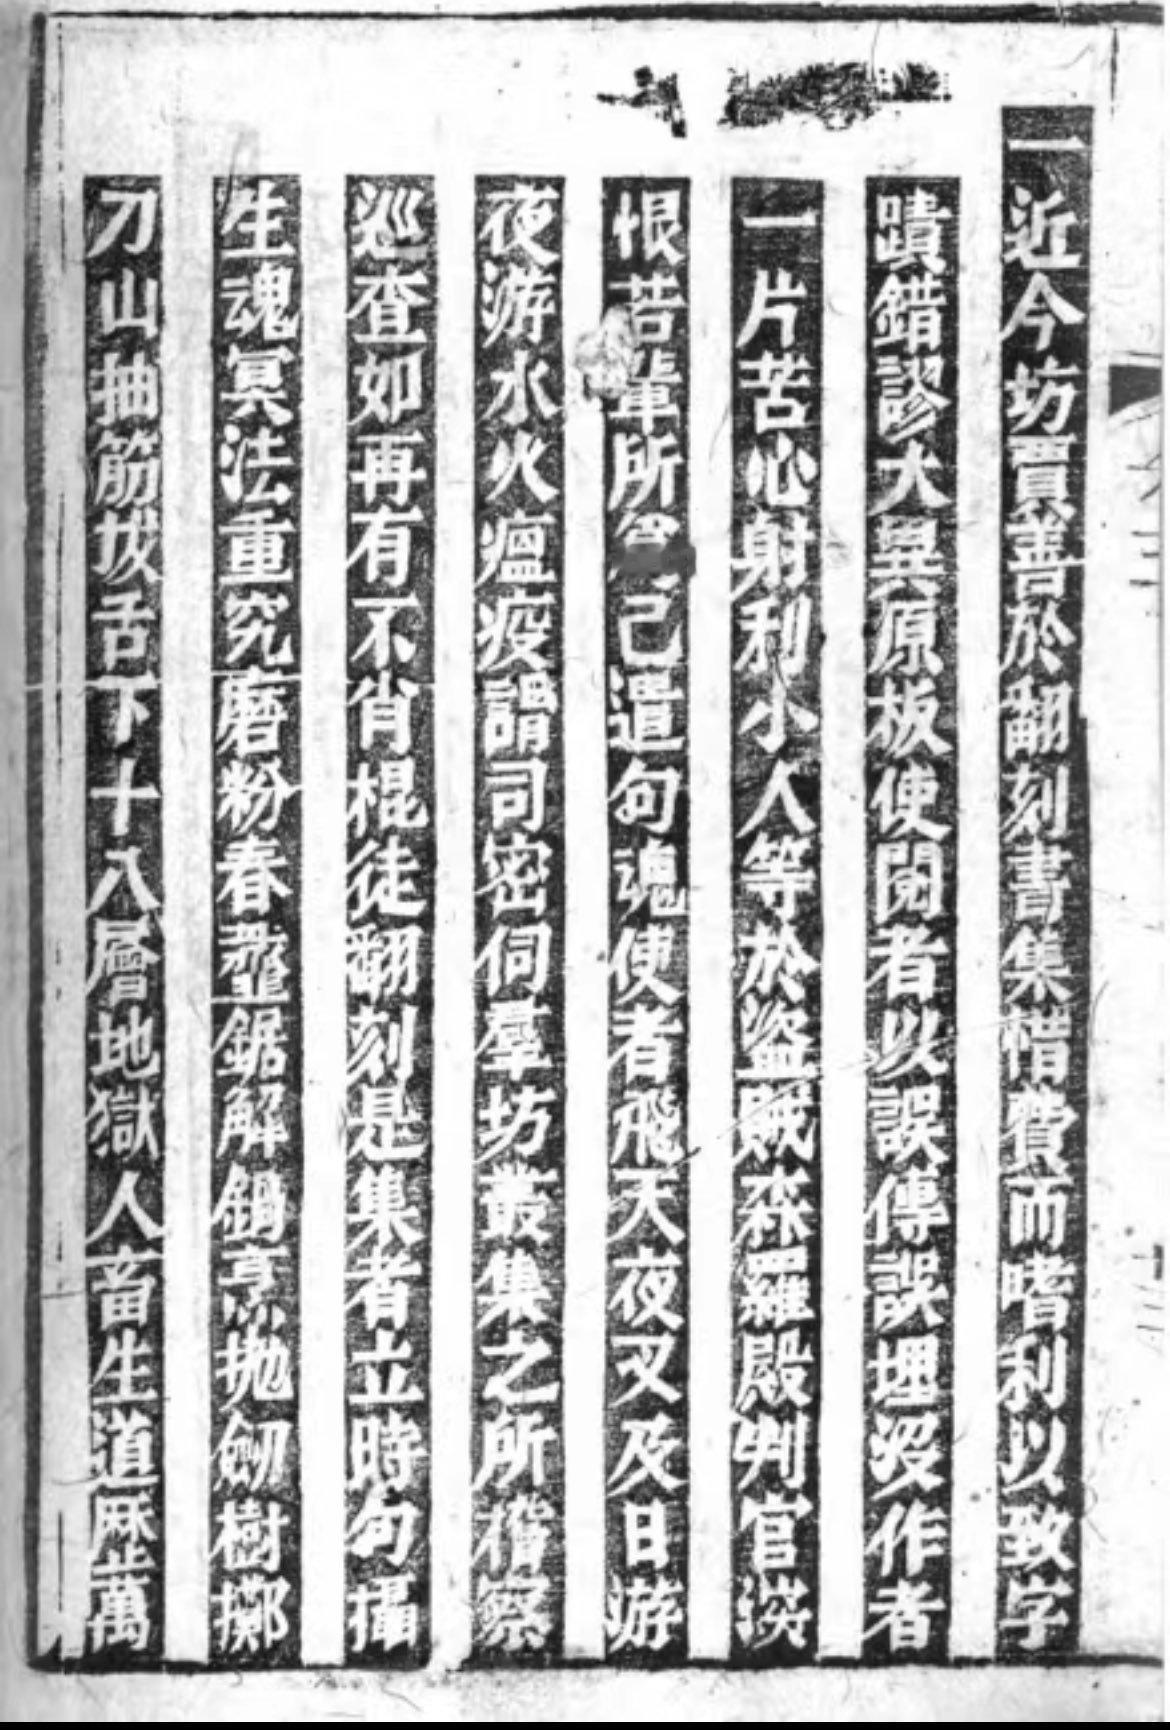 一近今坊賈善於翻刻書集惜費而嗜利以致字
蹟錯謬大異原板使閱者以誤傳誤埋没作者
一片苦心射利小人等於盜賊森羅殿判官深
恨若輩所為已遣勾魂使者飛天夜叉及日游
夜游水火瘟疫諸司密伺羣坊叢集之所稽察
巡查如再有不肖棍徒翻刻是集者立時勾攝
生魂冥法重究磨粉舂虀鋸解鍋烹拋劒樹擲
刀山抽筋拔舌下十八層地獄人畜生道歷萬